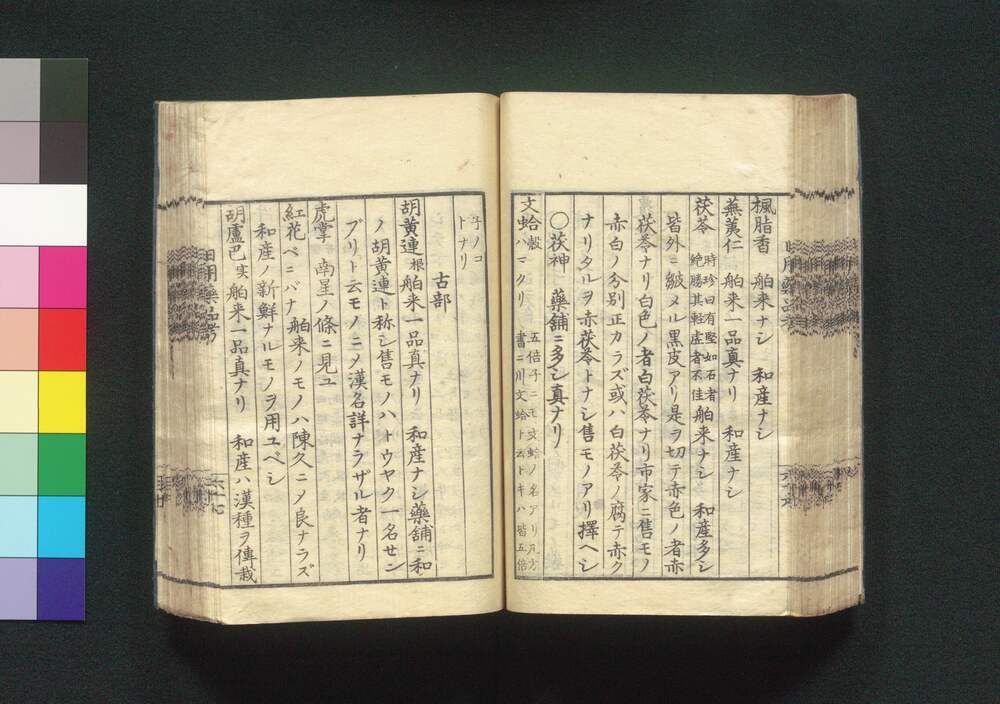 楓脂香 舶来ナシ 和産ナシ
蕪荑仁 舶来一品真ナリ 和産ナシ
茯苓 時珍曰有堅如石者絶勝其軽虚者不佳 舶来ナシ 和産多シ
皆外ニ皺メル黒皮アリ是ヲ切テ赤色ノ者赤
茯苓ナリ白色ノ者白茯苓ナリ市家ニ售モノ
赤白ノ分別正カラズ或ハ白茯苓ノ腐テ赤ク
ナリタルヲ赤茯苓トナシ售モノアリ擇ヘシ
〇茯神 藥舗ニ多シ真ナリ
文蛤 殻 ハマクリ 五倍子ニモ文蛤ノ名アリ凡方書ニ川文蛤ト云トキハ皆五倍
子ノコトナリ
古部
胡黄連 根 舶来一品真ナリ 和産ナシ藥舗ニ和
ノ胡黄連ト称シ售モノハトウヤク一名セン
ブリト云モノニメ漢名詳ナラザル者ナリ
虎掌 南星ノ條ニ見ユ
紅花 ベニバナ 舶来ノモノハ陳久ニメ良ナラズ
和産ノ新鮮ナルモノヲ用ユベシ
胡盧巴 実 舶来一品真ナリ 和産ハ漢種ヲ傳栽
日用藥品考